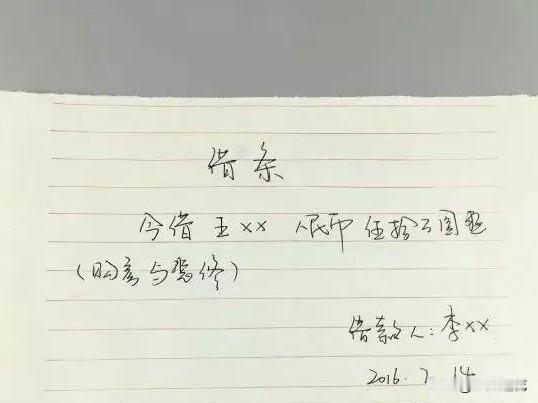 借条
今借王×× 人民币伍拾万圆整
(购房与装修)
借款人:李××
2016.7.14